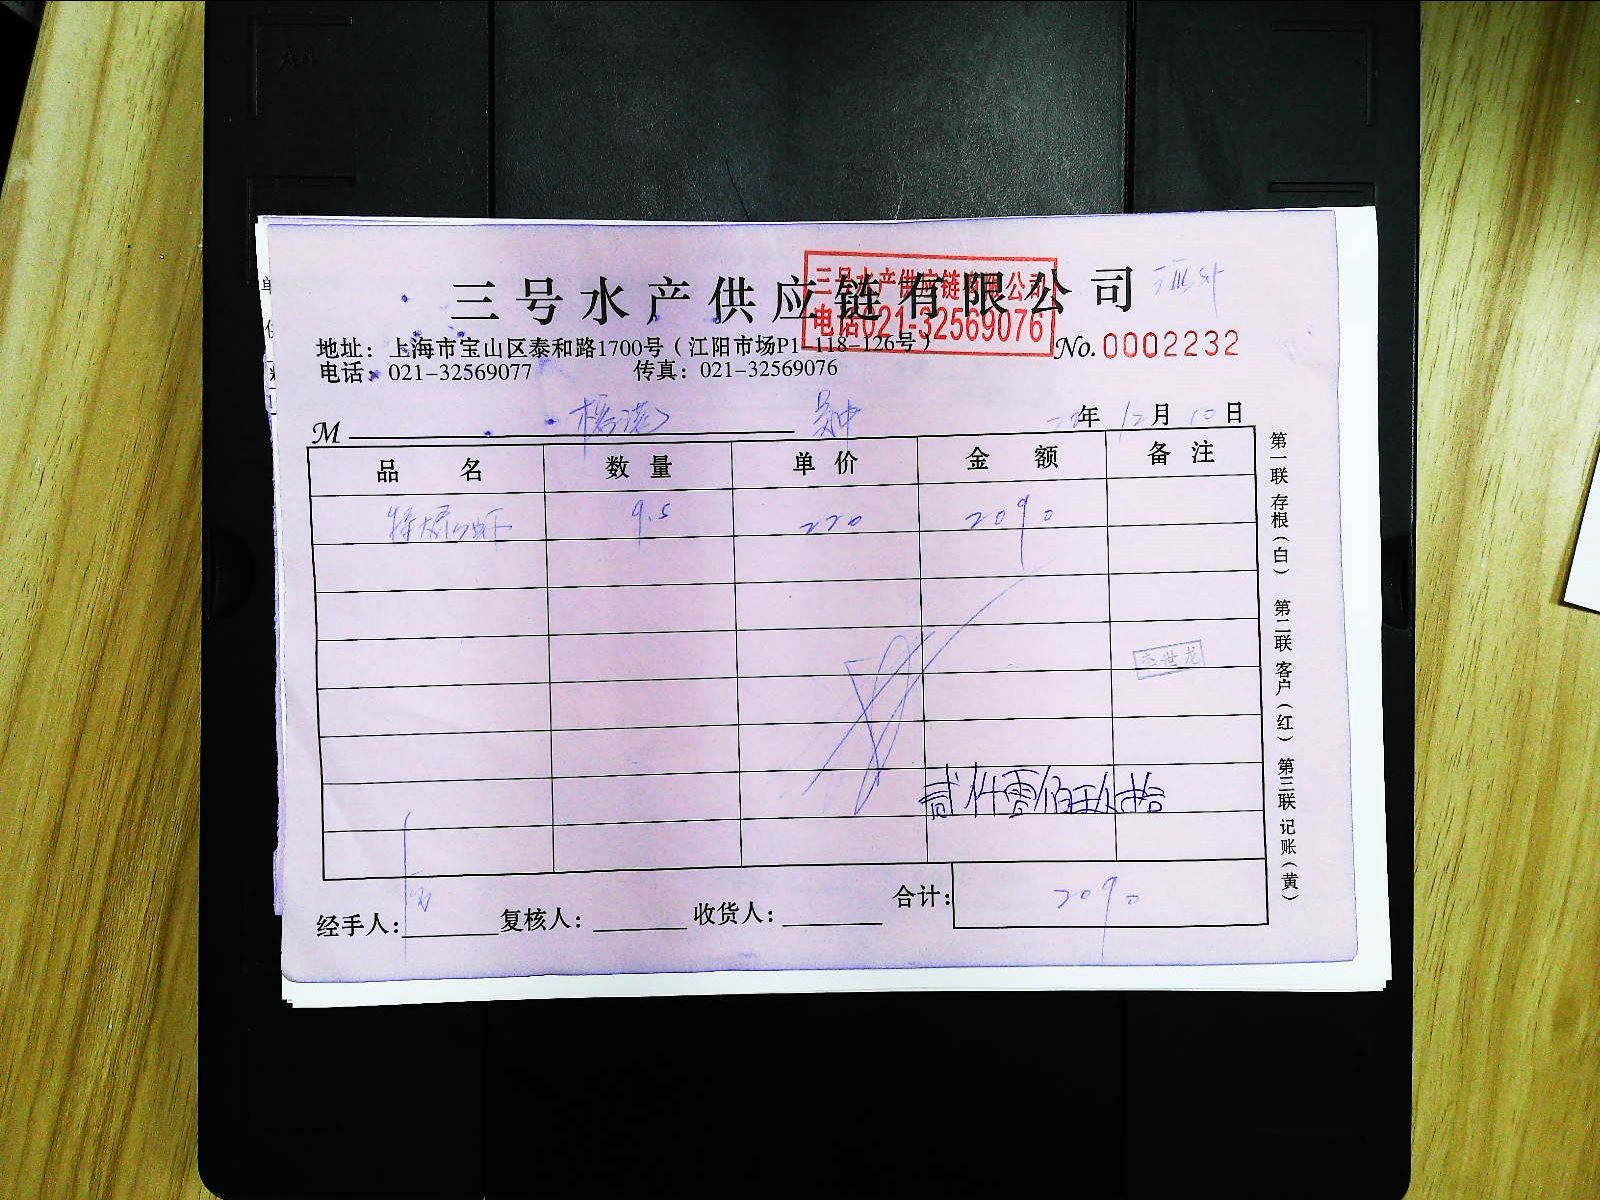 三号水产供应链有限公司
三号水产供应链有限公司
电话021-32569076
地址：上海市宝山区泰和路1700号（江阳市场P1-118-126号）
No.0002232
电话：021-32569077 传真：021-32569076
M 年 12月 10日
品 名 数 量 单 价 金 额 备 注
9.5 220 2090
李世龙
贰仟零佰玖拾
合计： 2090
经手人： 复核人： 收货人：
第一联 存根（白） 第二联 客户（红） 第三联 记账（黄）